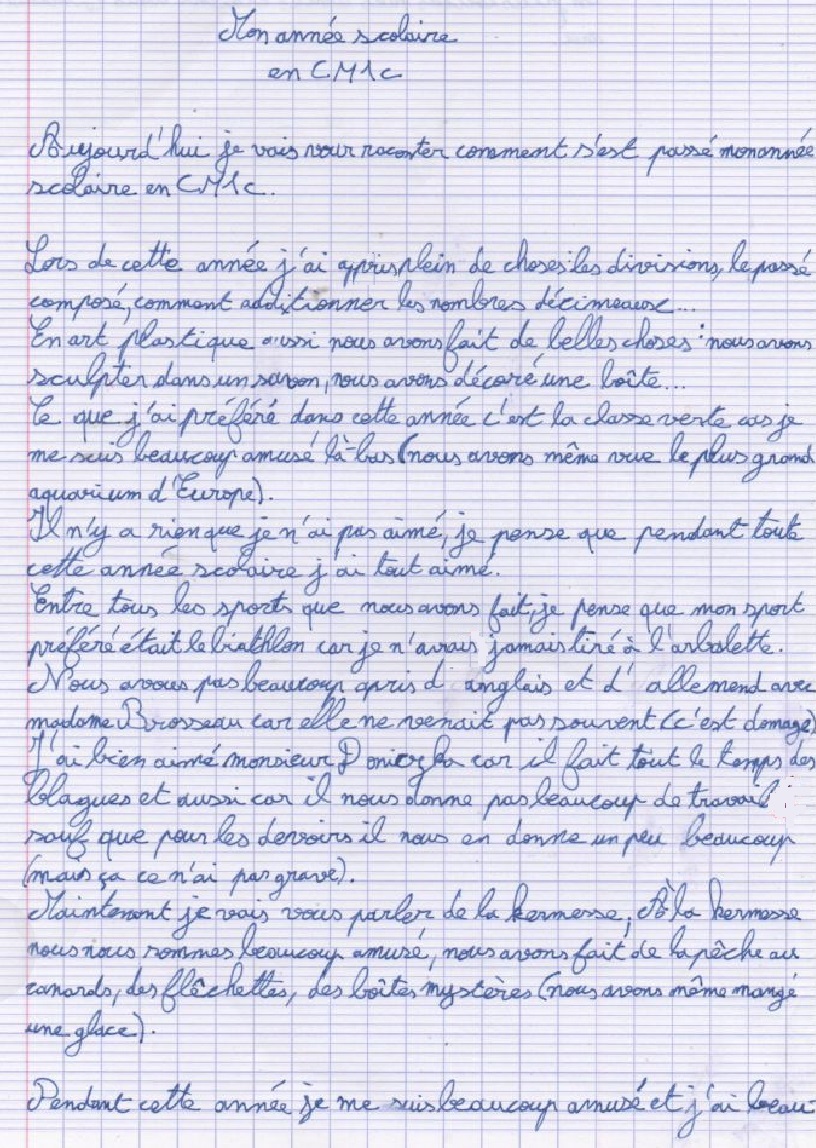 Mon année scolaire
en CM1c
Aujourd'hui je vais vour raconter comment s'est passé mon année
scolaire en CM1c.
Lors de cette année j'ai appris plein de choses: les divisions, le passé
composé, comment additionner les nombres décimeause...
En art plastique aussi nous avons fait de belles choses : nous avons
sculpter dans un savon, nous avons décoré une boîte...
Ce que j'ai préféré dans cette année c'est la classe verte car je
me suis beaucoup amusé là-bas (nous avons même vue le plus grand
aquarium d'Europe).
Il n'y a rien que je n'ai pas aimé, je pense que pendant toute
cette année scolaire j'ai tout aimé.
Entre tous les sports que nous avons fait, je pense que mon sport
préféré était le biathlon car je n'avais jamais tiré à l'arbalette.
Nous avons pas beaucoup apris d'anglais et d'allemend avec
madame Brosseau car elle ne venait pas souvent (c'est domage)
J'ai bien aimé monsieur car il fait tout le temps des
blagues et aussi car il nous donne pas beaucoup de travail
sauf que pour les devoirs il nous en donne un peu beaucoup
(mais ça ce n'ai pas grave).
Maintenant je vais vous parler de la kermesse. À la kermesse
nous nous sommes beaucoup amusé, nous avons fait de la pêche au
canards, des flêchettes, des boîtes mystères (nous avons même mangé
une glace).
Pendant cette année je me suis beaucoup amusé et j'ai beau-